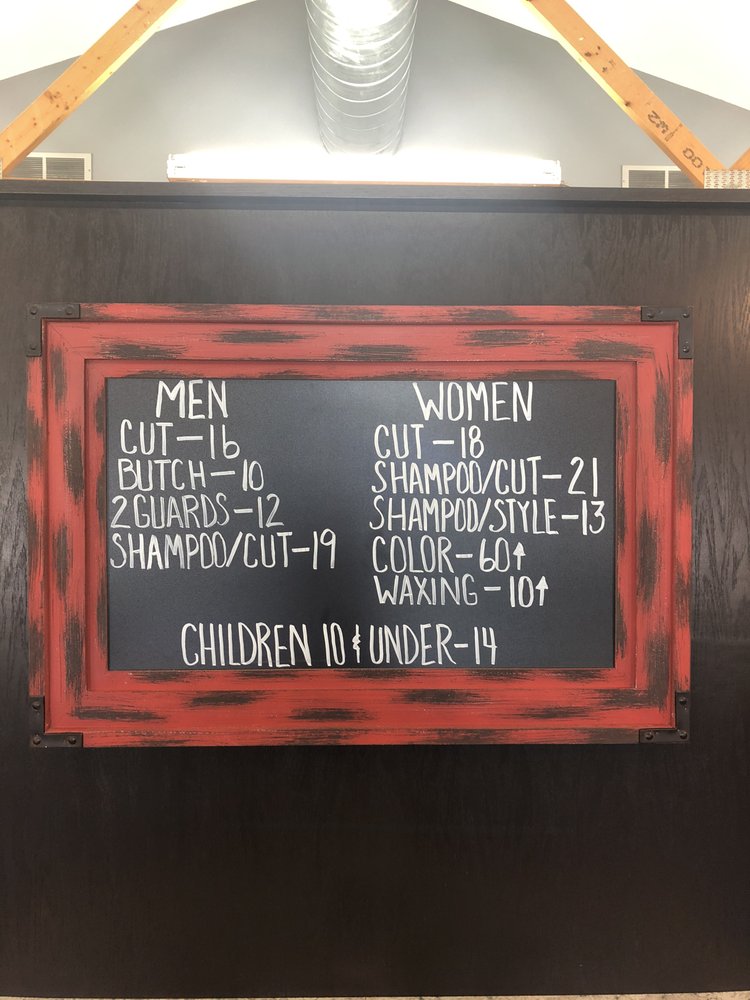 MEN
CUT-16
BUTCH-10
2 GUARDS-12
SHAMPOO/CUT-19
WOMEN
CUT-18
SHAMPOO/CUT-21
SHAMPOO/STYLE-13
COLOR-60↑
WAXING-10↑
CHILDREN 10 & UNDER-14